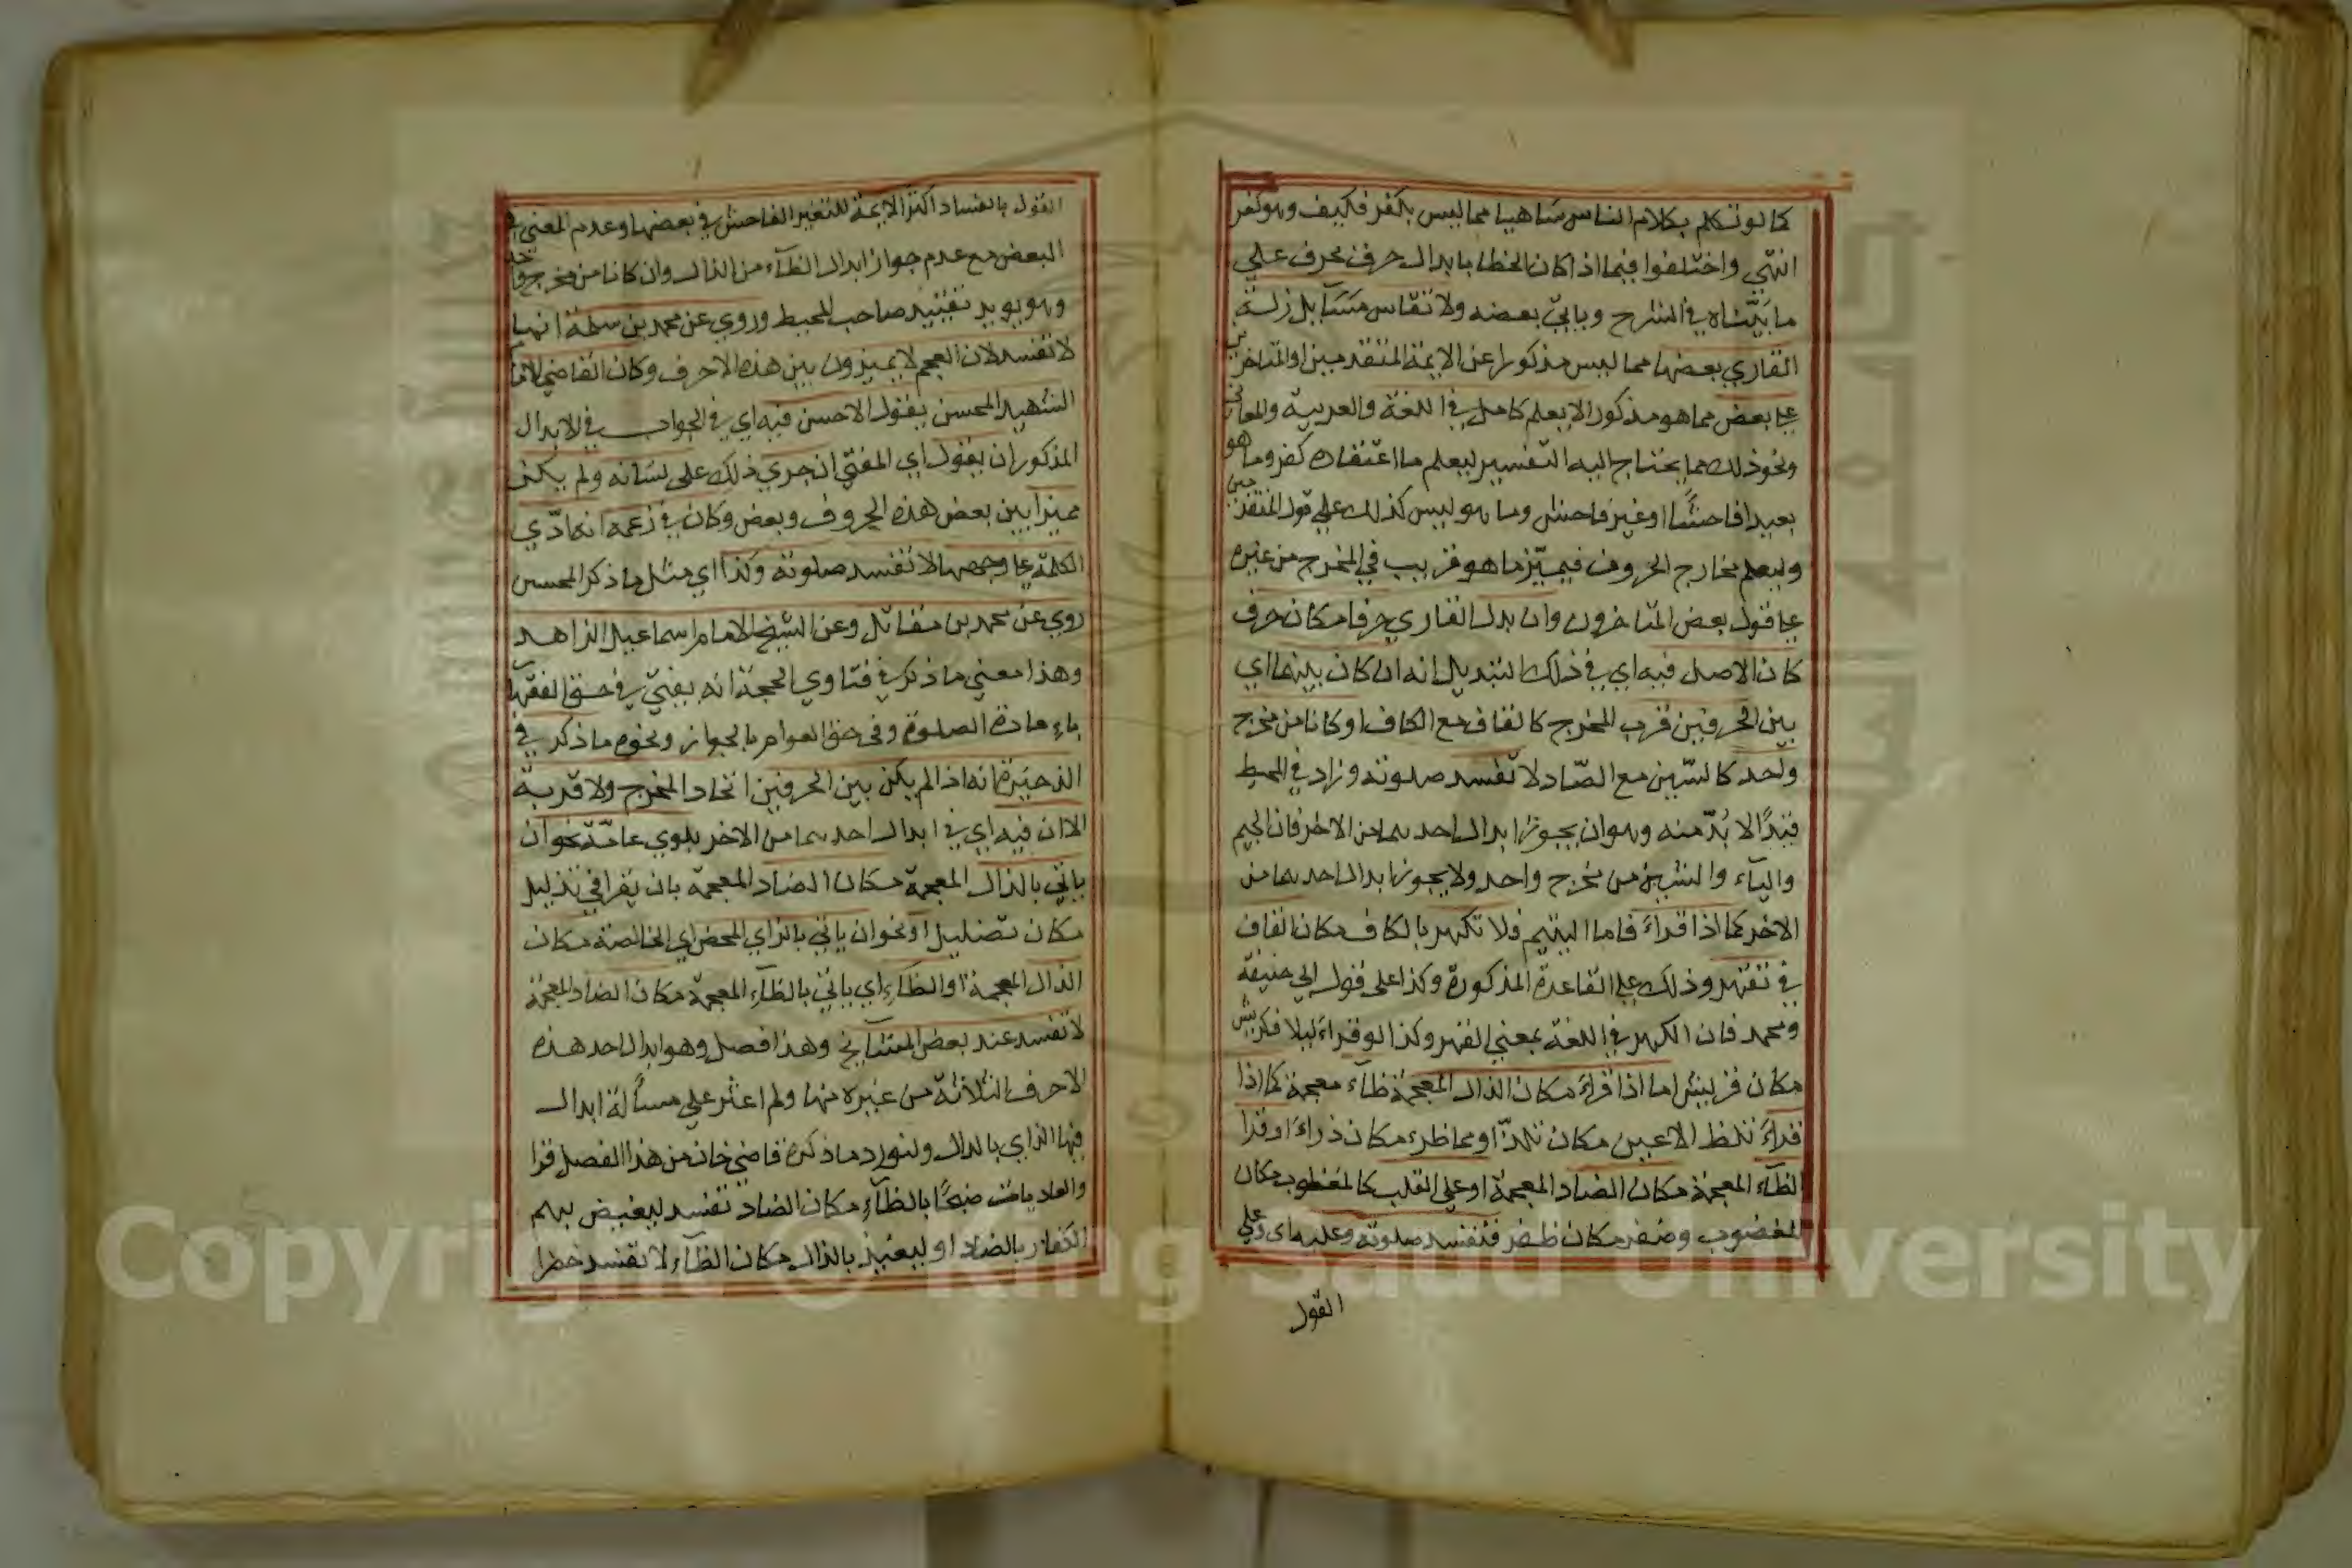 كما لو تكلم بكلام الناس ساهيا مما ليس بكفر فكيف وهو كفر
انتهي واختلفوا فيما اذا كان الخطا بابدال حرف بحرف علي
ما بيناه في الشرح وياتي بعضه ولا تقاس مسآيل زلة
القاري بعضها مما ليس مذكورا عن الايمة المتقدمين او المتاخرين
علي بعض مما هو مذكور الا بعلم كامل في اللغة والعربية والمعاني
ونحو ذلك مما يحتاج اليه التفسير ليعلم ما اعتقاده كفر وما هو
بعيدا فاحشًا او غير فاحش وما هو ليس كذلك علي قول المتقدمين
وليعلم مخارج الحروف فيميّز ما هو قريب في المخرج من غيره
علي قول بعض المتاخرون وان بدل القاري حرفا مكان حرف
كان الاصل فيه اي في ذلك التبديل انه ان كان بينهما اي
بين الحرفين قرب المخرج كالقاف مع الكاف او كانا من مخرج
واحد كالسّين مع الصّاد لا تفسد صلوته وزاد في المحيط
قيدًا لا بُدّ منه وهو ان يجوز ابدال احدهما من الاخر فان الجيم
واليآء والشين من مخرج واحد ولا يجوز ابدال احدهما من
الاخر كما اذا قراءَ فاما اليتيم فلا تكهر بالكاف مكان القاف
في تقهر وذلك علي القاعدة المذكورة وكذا علي قول ابي حنيفة
ومحمد فان الكهر في اللغة بمعني القهر وكذا لو قراءَ ليلاف كريش
مكان قريش اما اذا قراءَ مكان الذال المعجمة ظآء معجمة كما اذا
قراءَ تلظ الاعين مكان تلذّ او مما ظرء مكان ذراءَ او قرا
الظآء المعجمة مكان الضاد المعجمة او علي القلب كالمغظوب مكان
المغضوب وضفر مكان ظفر فتفسد صلوته وعليه اي وعلي
القول
القول بالفساد اكثر الايمة للتغير الفاحش في بعضها وعدم المعني في
البعض مع عدم جواز ابدال الظآء من الذال وان كانا من مخرج واحد
وهو يويد تقييد صاحب المحيط وروي عن محمد بن سلمة انها
لا تفسد لان العجم لا يميزون بين هذه الاحرف وكان القاضي الامام
الشهيد المحسن يقول الاحسن فيه اي في الجواب في الابدال
المذكور ان يقول اي المفتي ان جري ذلك علي لسانه ولم يكن
مميزا بين بعض هذه الحروف وبعض وكان في زعمه انه ادّي
الكلمة علي وجهها لا تفسد صلوته وكذا اي مثل ما ذكر المحسن
روي عن محمد بن مقاتل وعن الشيخ الامام اسماعيل الزاهد
وهذا معني ما ذكر في فتاوي الحجة انه يفتي في حق الفقهآء
باعادة الصلوة وفي حق العوام بالجواز ونحوه ما ذكر في
الذخيرة انه اذا لم يكن بين الحرفين اتحاد المخرج ولا قربه
الا ان فيه اي في ابدال احدهما من الاخر بلوي عامّة نحو ان
ياتي بالذال المعجمة مكان الضاد المعجمة بان يقرا في تذليل
مكان تضليل او نحو ان ياتي بالزاي المحض اي الخالصة مكان
الذال المعجمة او الظآء اي ياتي بالظآء المعجمة مكان الضاد المعجمة
لا تفسد عند بعض المشآيخ وهذا فصل وهو ابدال احد هذه
الاحرف الثلاثة من غيره منها ولم اعثر علي مسألة ابدال
فيها الزاي بالذال ولنورد ما ذكره قاضي خان من هذا الفصل قرا
والعاديات ضبحًا بالظآء مكان الضاد تفسد ليغيض بهم
الكفار بالضاد او ليغيذ بالذال مكان الظآء لا تفسد خضرا
Copyright © King Saud University